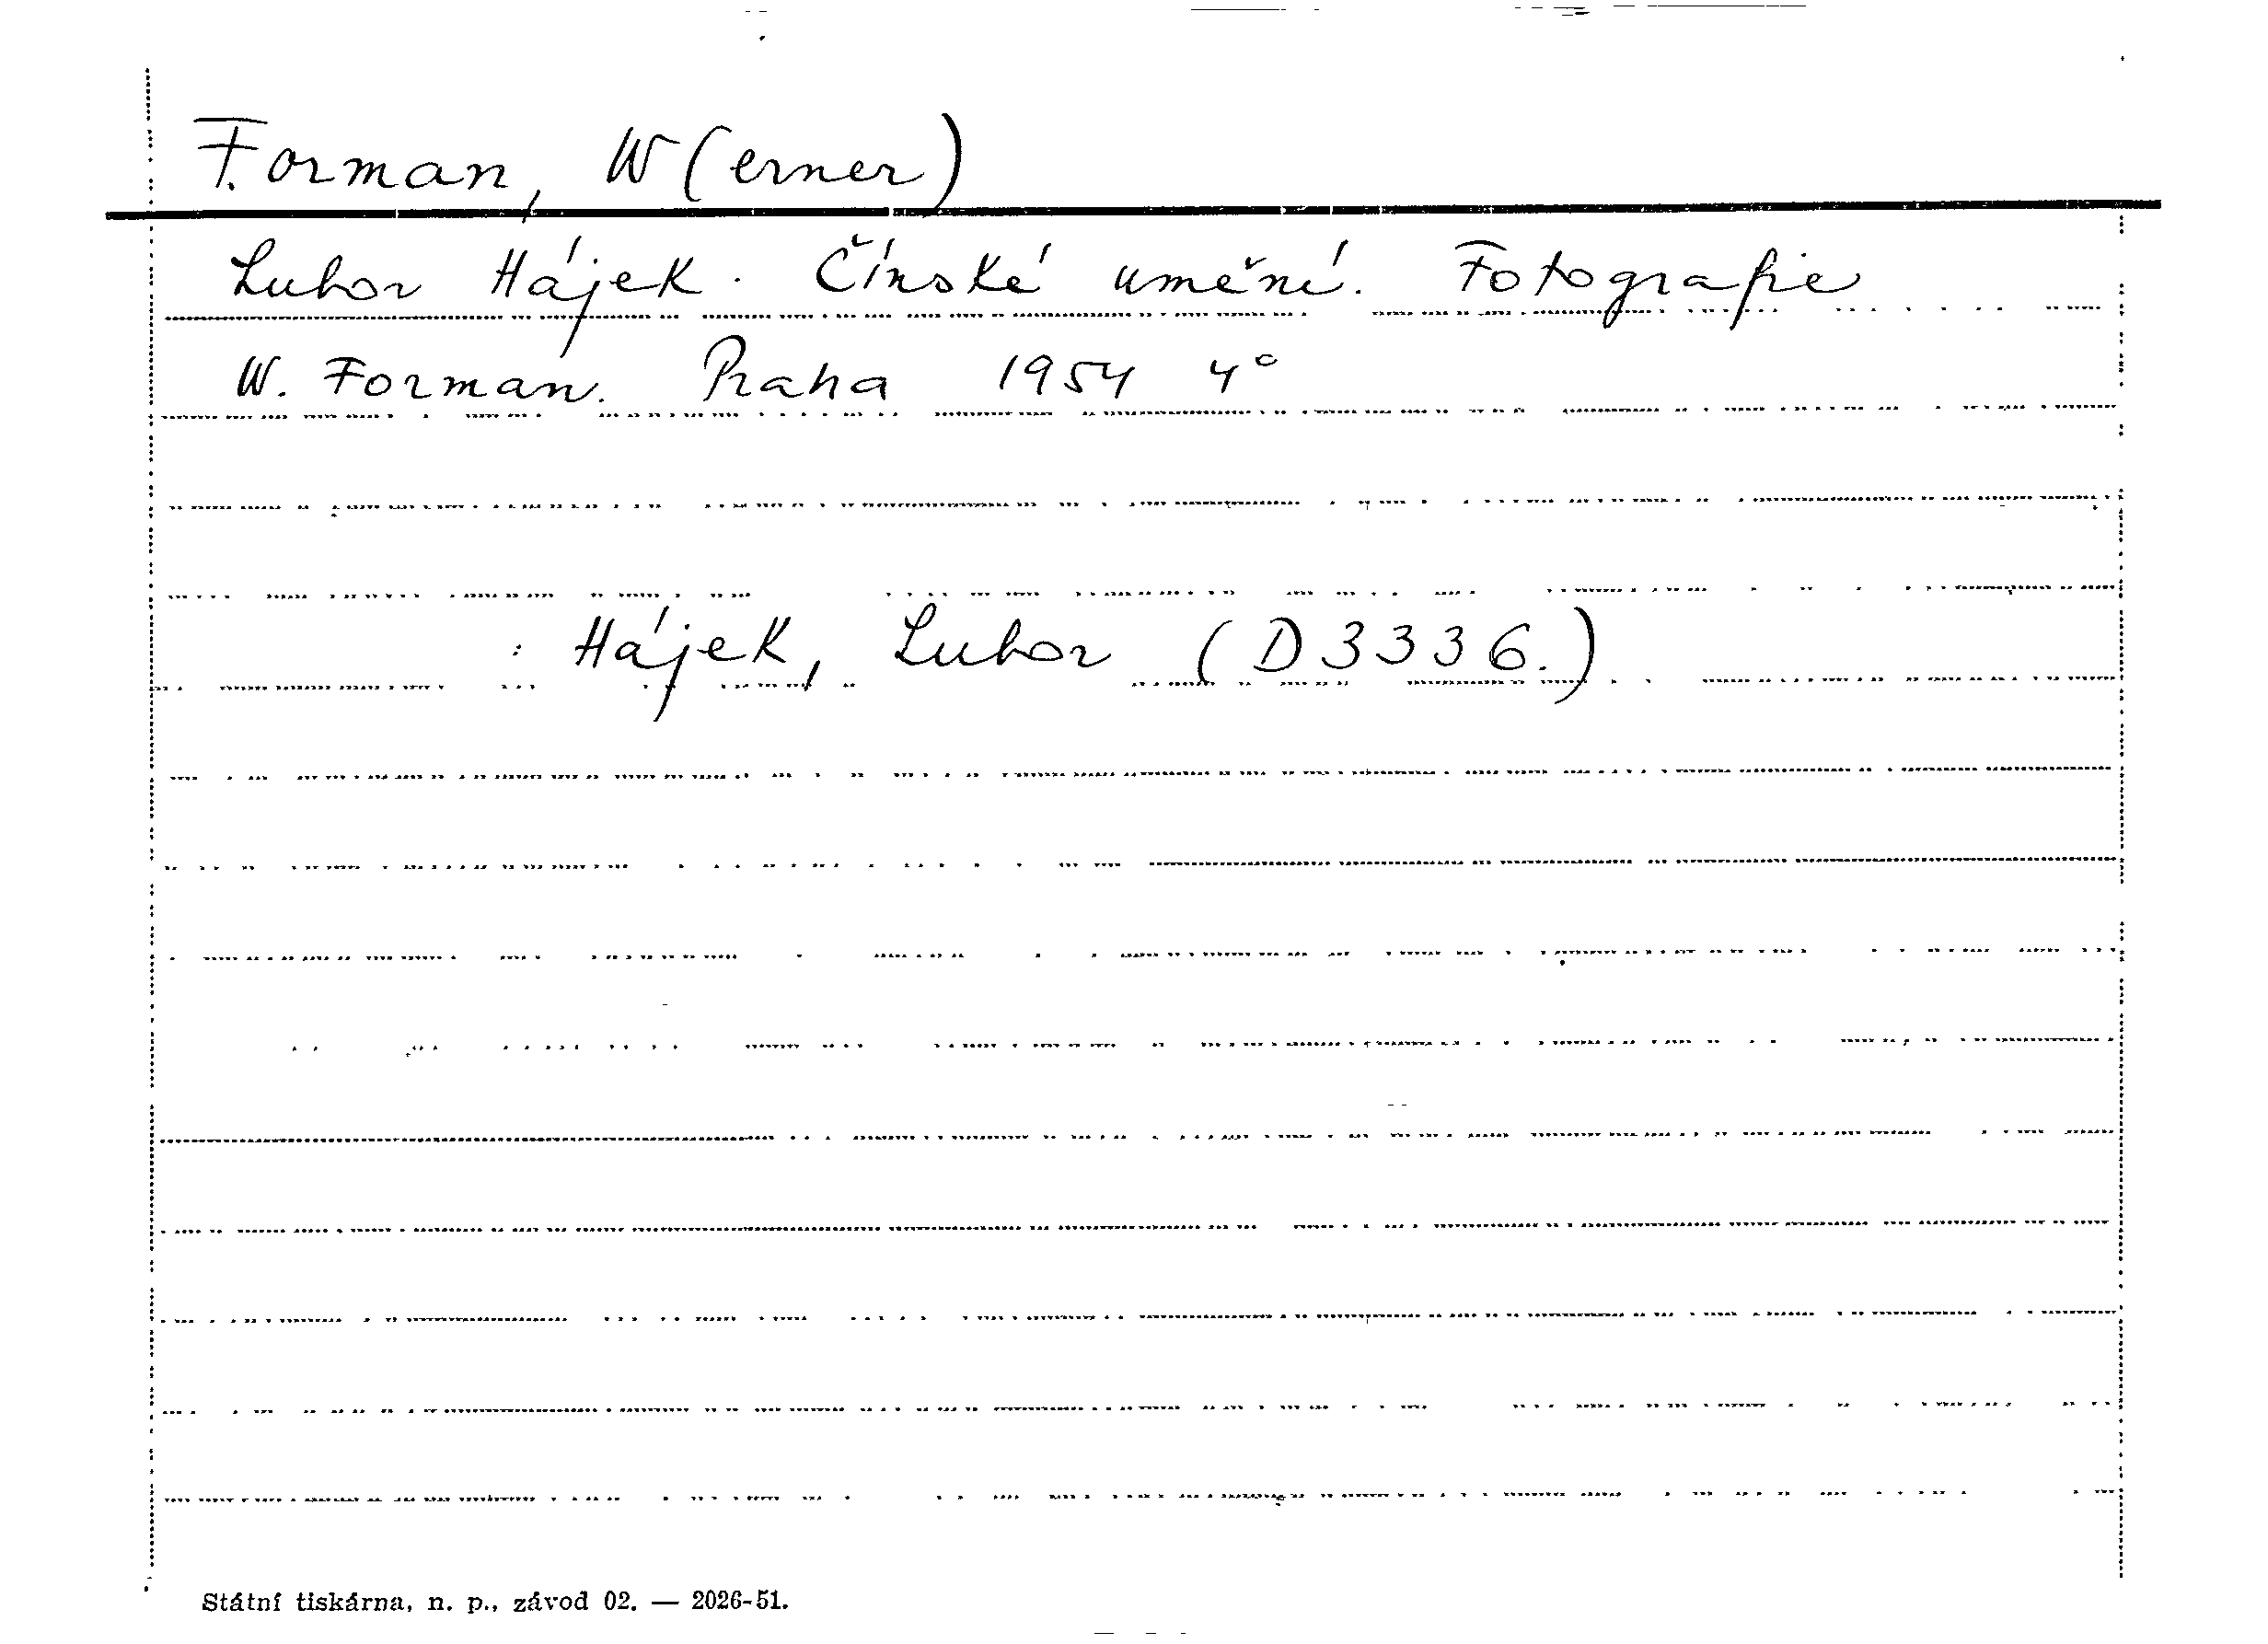 Forman, W(erner)
Lubor Hájek. Čínské umění. Fotografie
W. Forman. Praha 1954 4°
: Hájek, Lubor (D 3336.)
Státní tiskárna, n. p., závod 02. — 2026-51.